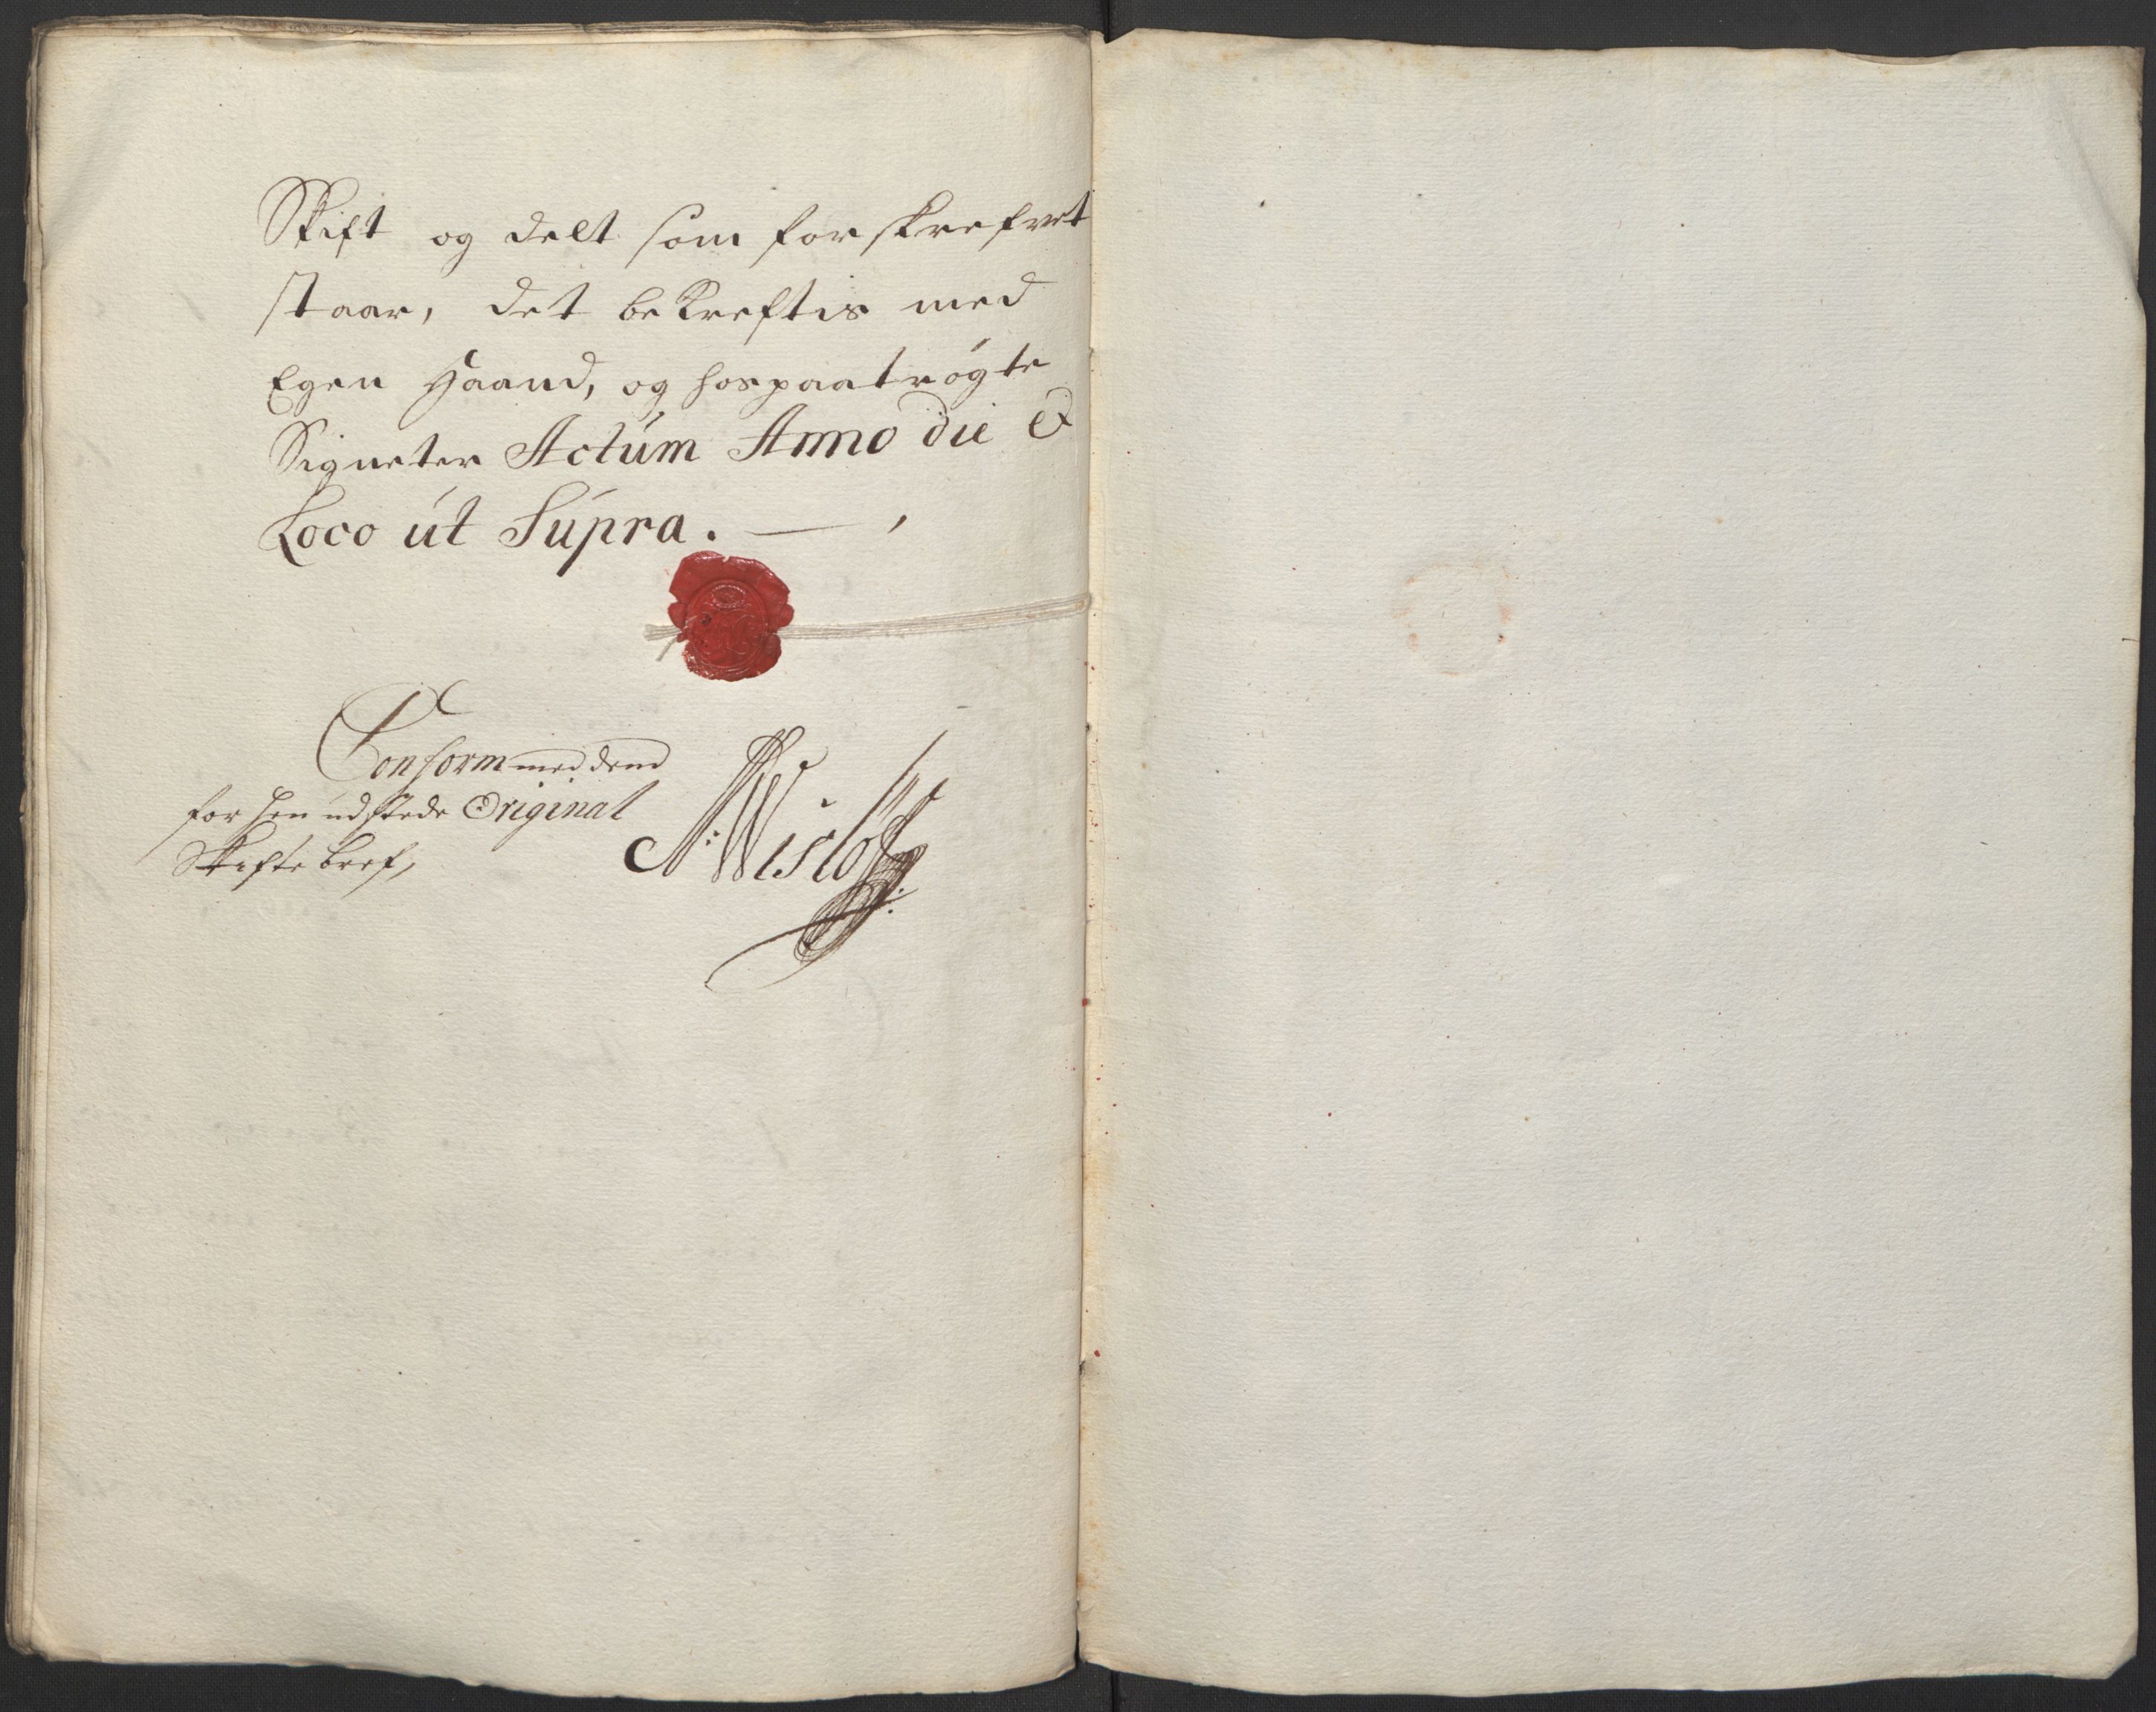 Skift og delt som forskrefvet
staar, det bekreftis med
Egen Haand, og hospaatrögte
Signeter Actum Anno die &
Loco ut Supra. —
Conform med dend
for hen udstede Original
Skifte bref,
A: Wislöff